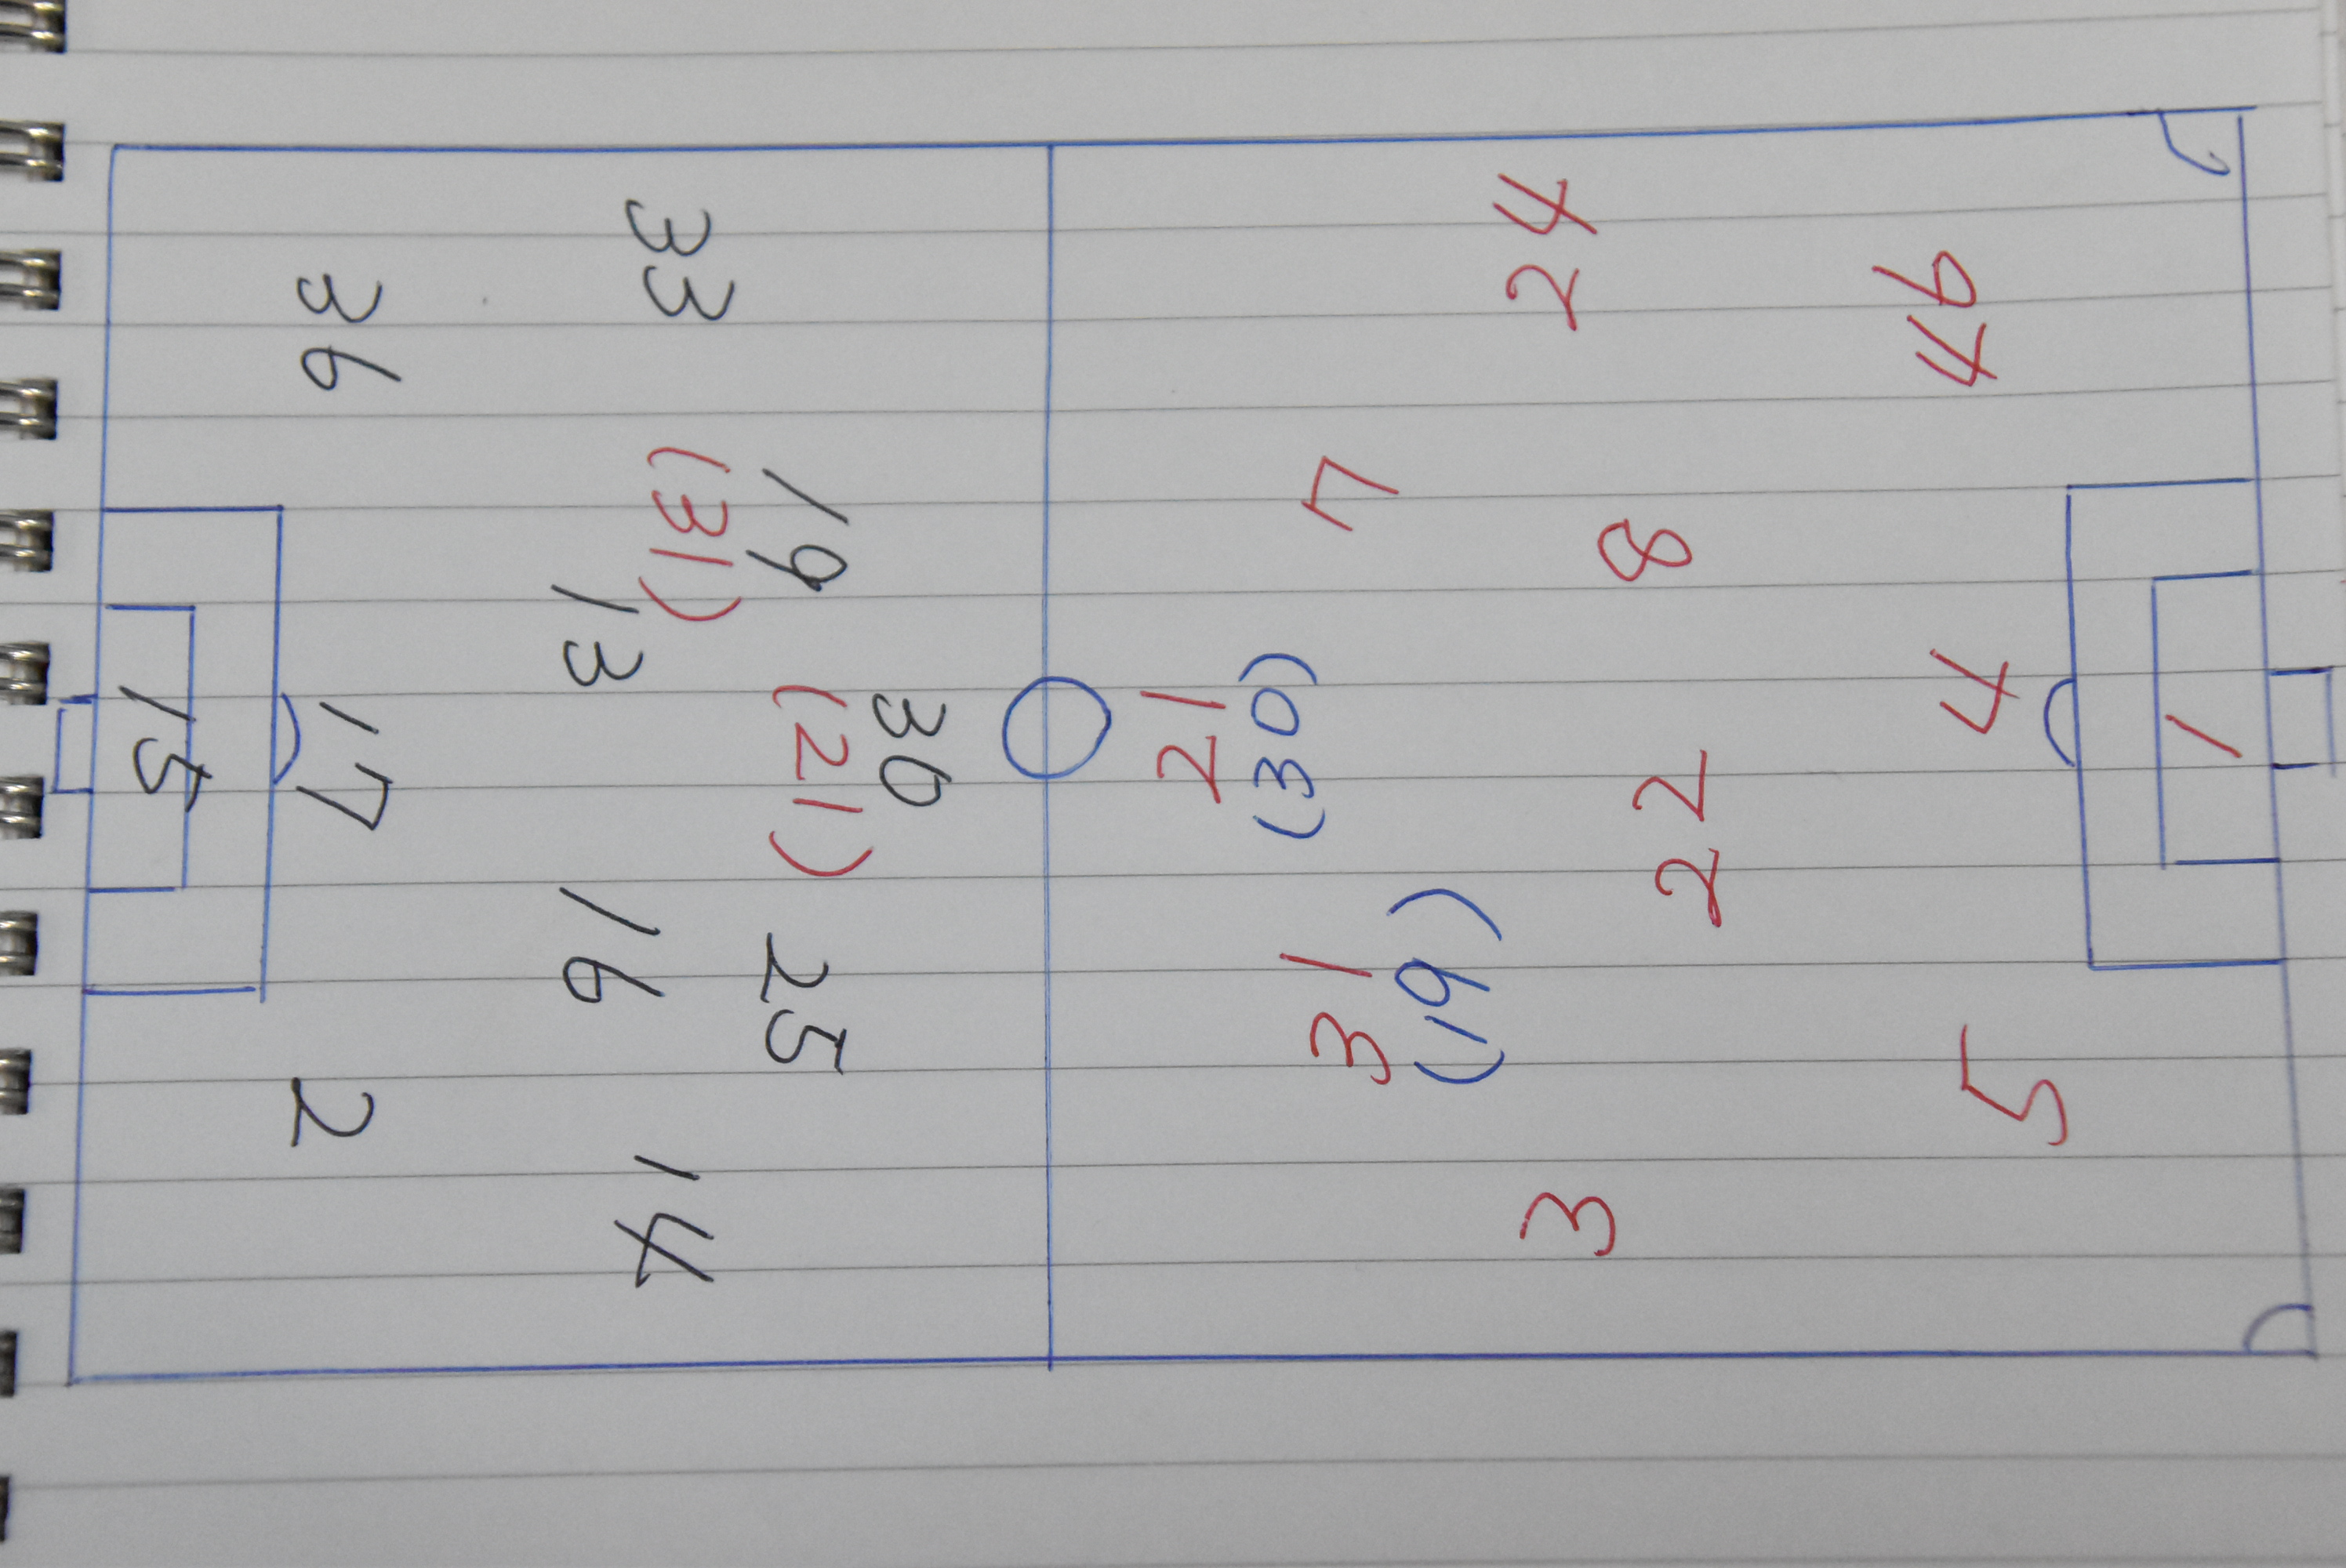 30
19 (21) 25
33 (31) 14
13 16
36 17 2
15
21
(30)
31 7
(19)
3 24
22 8
5 4 46
1